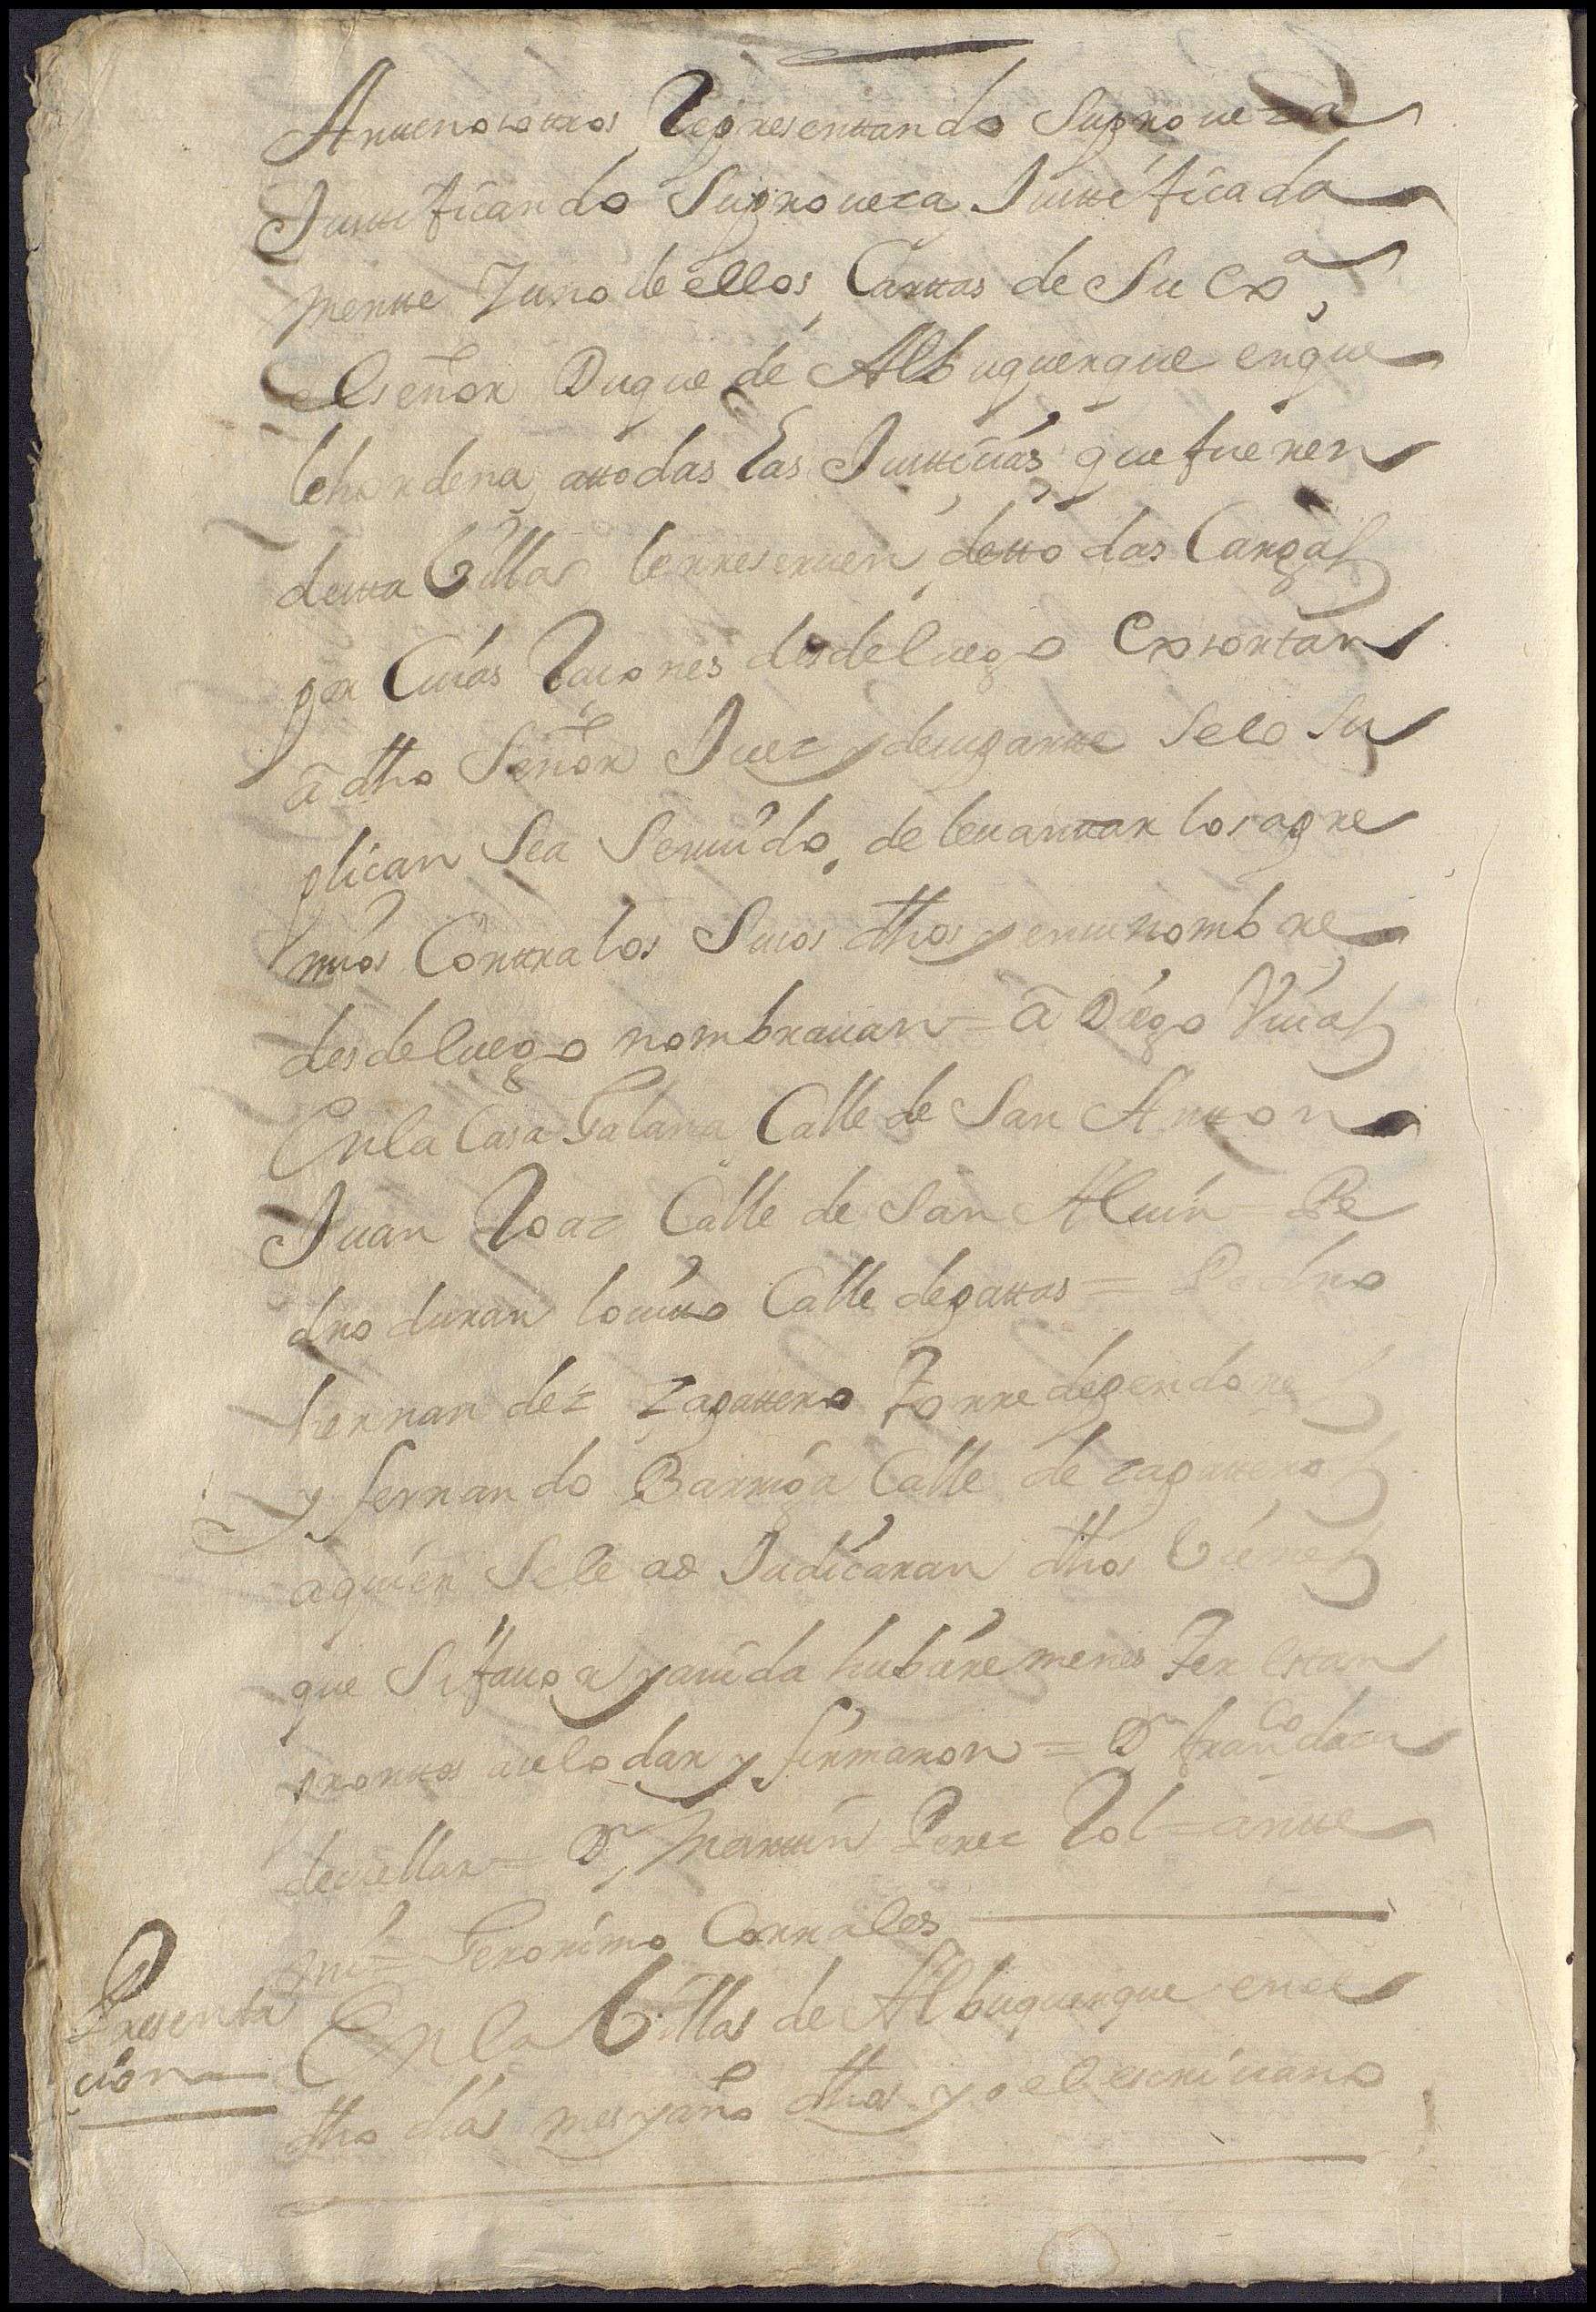 Antenosotros Representando Suproueza
Justificando Suproueza Justificada
mente Yuno de ellos Carttas de Su exª
elseñor Duque de Alburquerque enque
lehordena attodas las Justicias que fueren
destta Villa lerreseruen detto das Cargas
por Cuias Raçones desdeluego Exsortan
â dho Señor Juez y desuparte Selo Su
plican Sea Seruido de leuantar los apre
mios Conttra los Suso dhos y ensunombre
desdeluego nombrauan = â Diego Viuas
Enla Casa Galana Calle de San Anton
Juan Roaz Calle de San Aluin = Pe
dro duran Calle degattas = Pedro
hernan dez Zapattero Torre dependones
y fernan do Barriga Calle de zapatteros
aquien Sele ad Judicaran dhos Vienes
que Sifauor y aiuda hubiere menes Ter estan
prontos aselodar y firmaron = Dn franco daza
decuellar = Dn Martin Perez Rol = ante
mi = Geronimo Corrales
Presenta
cion
En la Villa de Alburquerque enel
dho dia mes y año dhos yo el escriuano